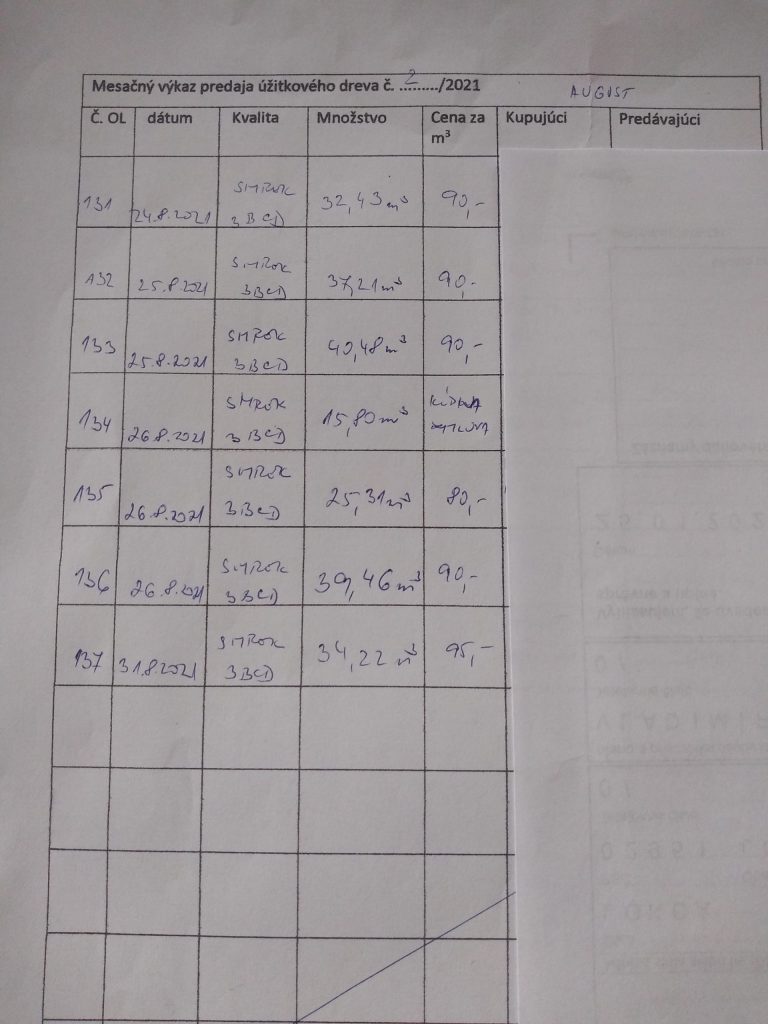 Mesačný výkaz predaja úžitkového dreva č. ...2....../2021 AUGUST
Č. OL dátum Kvalita Množstvo Cena za m³ Kupujúci Predávajúci
131 24.8.2021 SMROK 3BCD 32,43 m³ 90,-
132 25.8.2021 SMROK 3BCD 37,21 m³ 90.-
133 25.8.2021 SMROK 3BCD 40,48 m³ 90,-
134 26.8.2021 SMROK 3BCD 15,80 m³
135 26.8.2021 SMROK 3BCD 25,31 m³ 80,-
136 26.8.2021 SMROK 3BCD 39,46 m³ 90,-
137 31.8.2021 SMROK 3BCD 34,22 m³ 95,-